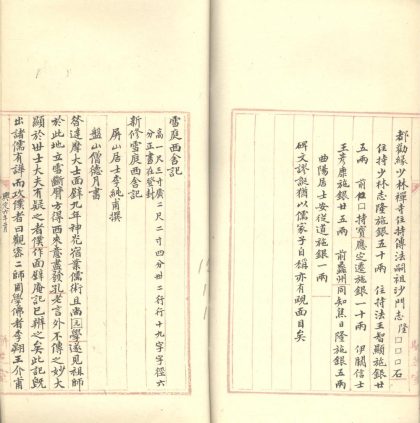 都勸緣少林禪寺住持傳法嗣祖沙門志隆□□□石
住持少林志隆施銀五十兩　住持法王智顯施銀廿
五兩　前住□持寶應定遷施銀一十兩　伊闕信士
王彥康施銀廿五兩　前蠡州同知焦日隆施銀五兩
曲陽居士安從道施銀一兩
碑文謬誕猶以儒家子自稱亦有靦面目矣
雪庭西舍記
高一尺三寸廣二尺二寸四分廿二行行十九字字徑六
分正書在登封
新修雪庭西舍記
屏山居士李純甫撰
盤山僧德月書
昔達摩大士面壁九年神光宿業儒術且尚玄學遂見祖師
於此地立雪斷臂方得西來意盡發孔老言外不傳之妙大
顯於世士大夫有疑之者僕作面壁庵記已辨之矣此記旣
出諸儒有譁而攻僕者曰觀容二師問學佛者李翱王介甫
興定六年